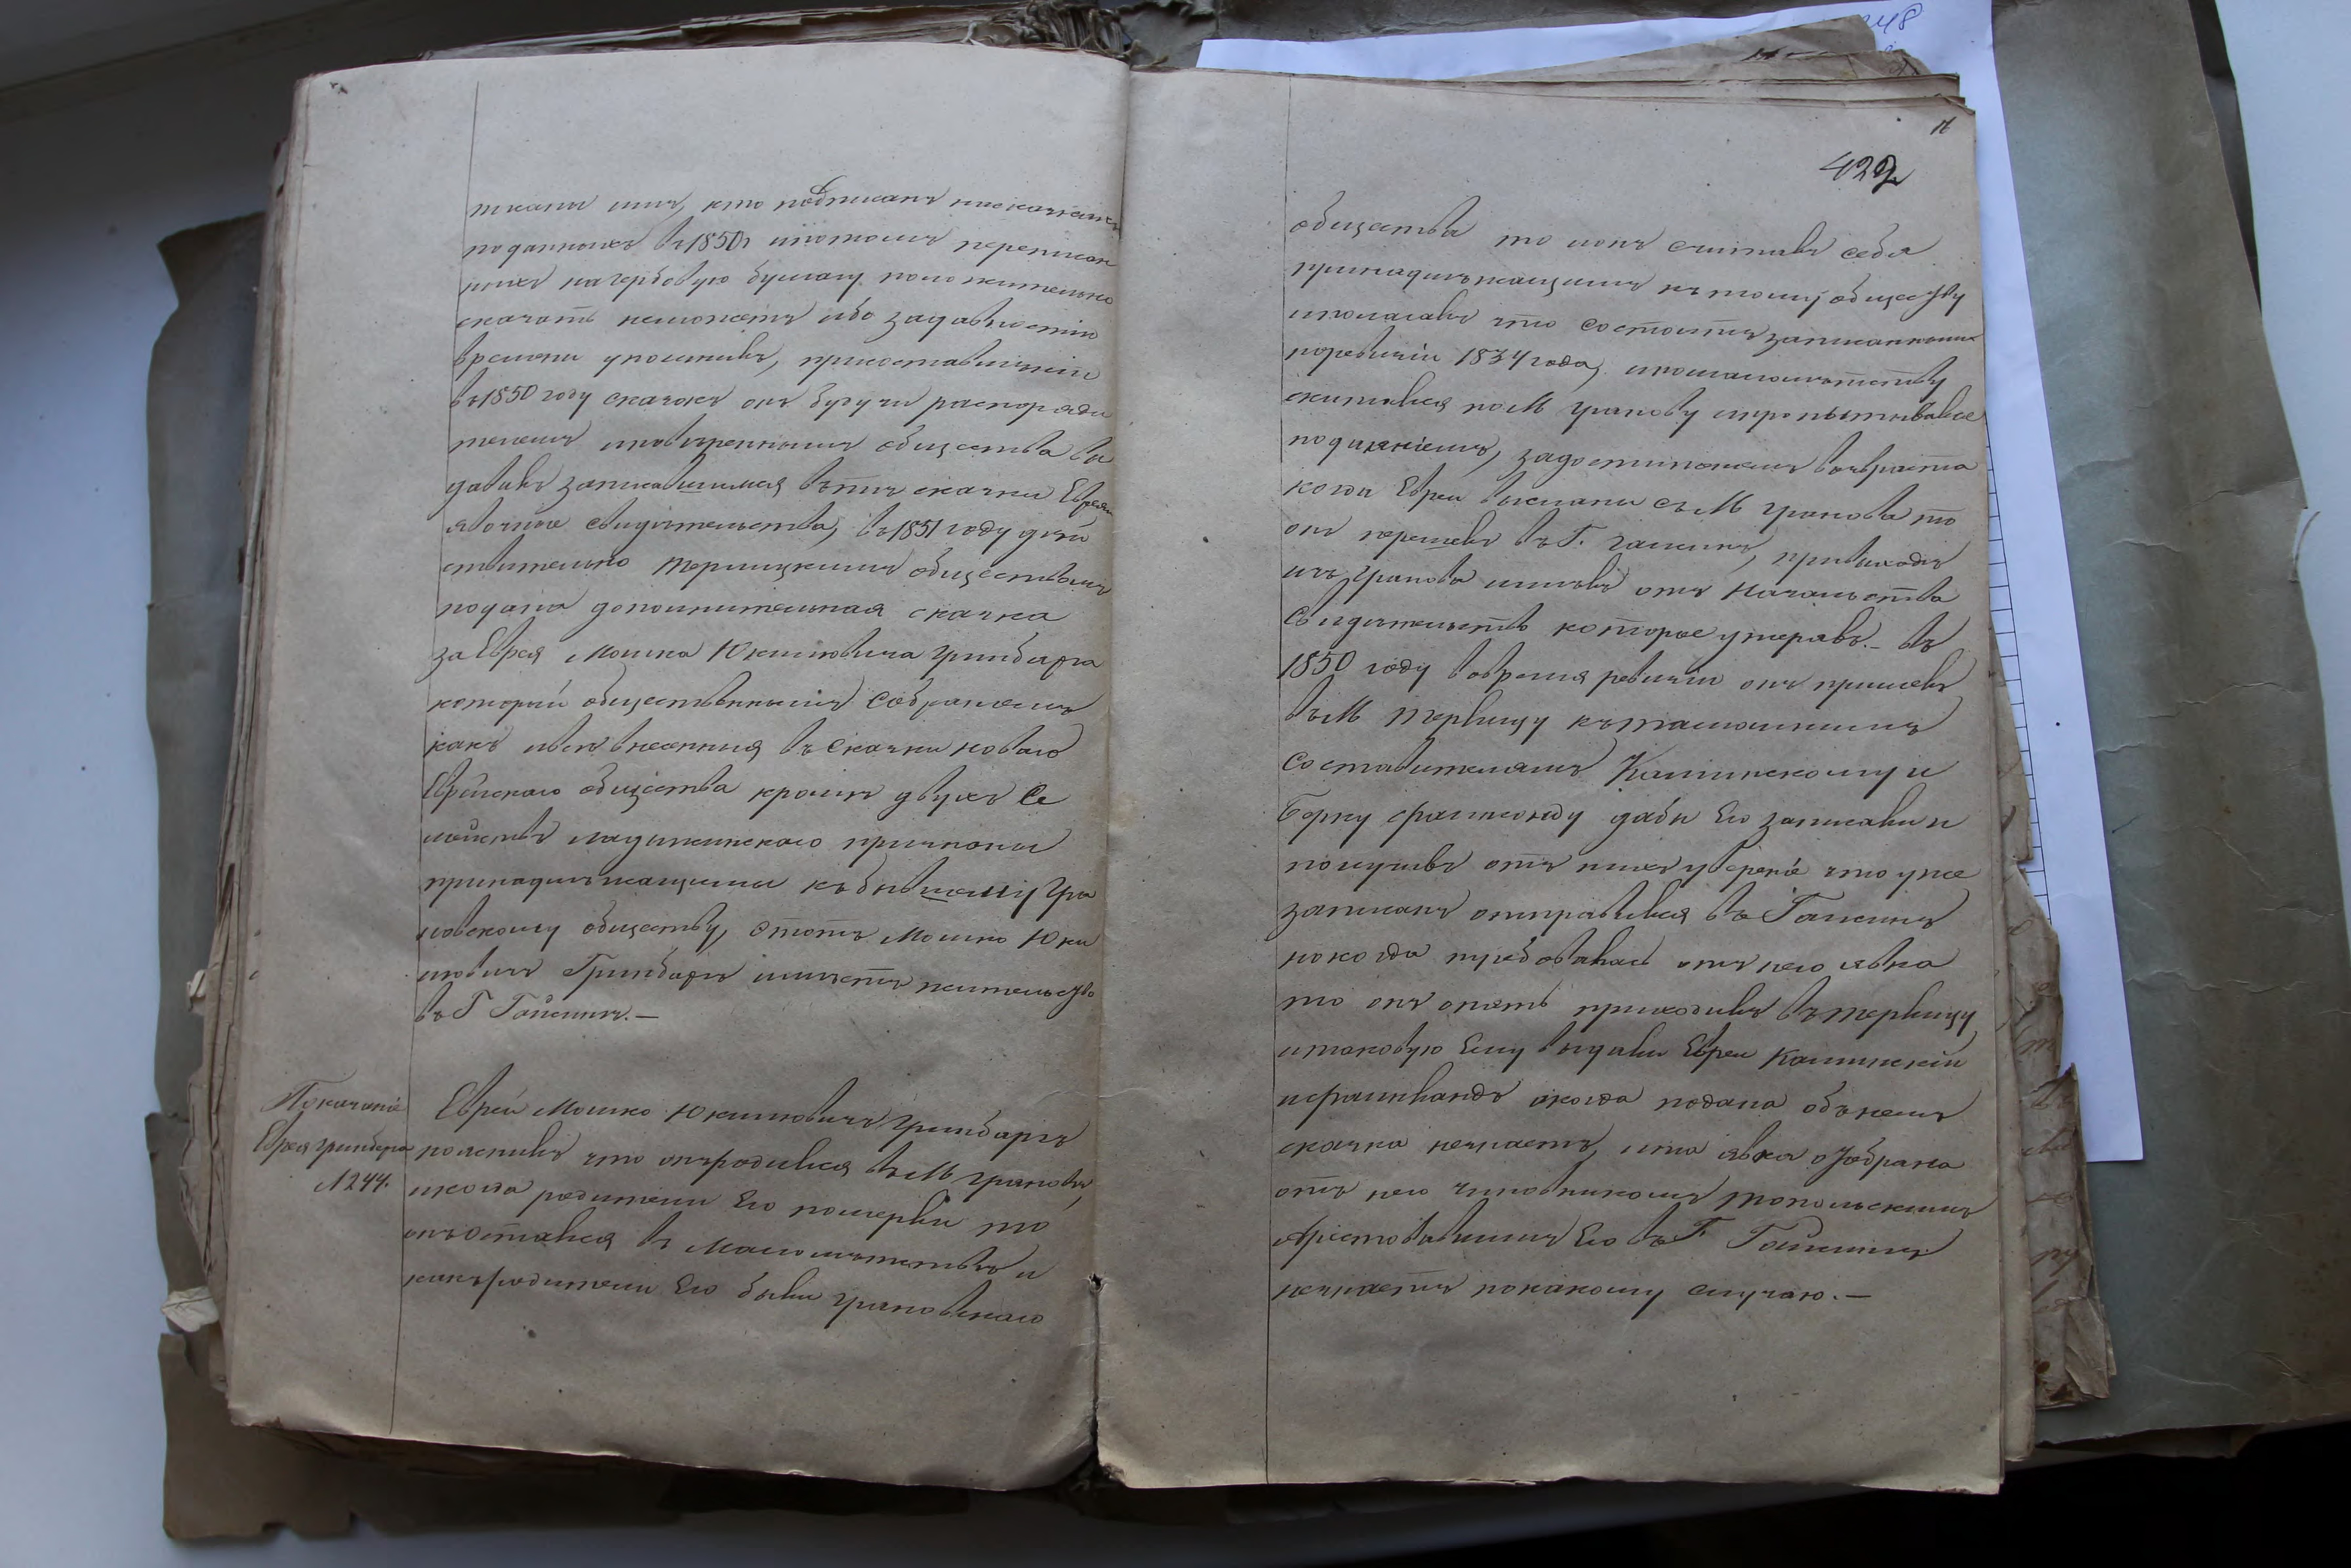 сканы имъ, кто подписанъ на сказкахъ
поданныхъ въ 1850г и потомъ переписан
ныхъ на гербовую бумагу положительно
сказать неможетъ ибо за давностію
времени упомнивъ, при составленіи
въ 1850 году сказокъ онъ будучи распоряди
телемъ и повѣреннымъ общества вы
давалъ записавшимся въ тѣ сказки Евреямъ
явочные свидѣтельства, въ 1851 году дѣй
ствительно Терлицкимъ обществомъ
подана дополнительная сказка
за Еврея Мошка Юкимовича Гринбарга
который общественнымъ собраніемъ
какъ и всѣ внесенныя въ сказки новаго
Еврейскаго общества кромѣ двухъ Се
мействъ ладыжинскаго признаны
принадлежащими къ бывшему Гра
новскому обществу, этотъ Мошко Юки
мовичъ Гринбаргъ имѣетъ жительство
въ Г Гайсинѣ.—
Показаніе
Еврея Гринберга
№ 1244.
Еврей Мошко Юкимовичъ Гринбаргъ
пояснилъ что онъ родился въ М Грановѣ,
и когда родители Его померли то
онъ остался въ малолѣтствѣ и
какъ родители Его были Грановскаго
422
общества то и онъ считалъ себя
принадлежащимъ къ тому обществу
и полагалъ что состоитъ записаннымъ
по ревизіи 1834 года, и по малолѣтству
скитался по М Гранову и пропитывался
подаяніемъ, за достиженіемъ возраста
когда Евреи высланы съ М Гранова то
онъ перешелъ въ Г. Гайсинъ, при выходѣ
изъ Гранова имѣлъ отъ Начальства
Свидѣтельство которое утерялъ.— Въ
1850 году во время ревизіи онъ пришелъ
въ М Терлицу къ тамошнимъ
составителямъ Каминскому и
Борку Фрамконду дабы Его записали и
получивъ отъ нихъ увѣреніе что уже
записанъ отправился въ Гайсинъ
но когда требовалась отъ него явка
то онъ опять приходилъ въ Терлицу
и таковую Ему выдали Евреи Каминскій
и Фрамкондъ а когда подана объ немъ
сказка незнаетъ, и та явка отобрана
отъ него чиновникомъ Топольскимъ
Арестовавшимъ Его въ Г. Гайсинѣ
незнаетъ по какому случаю.—